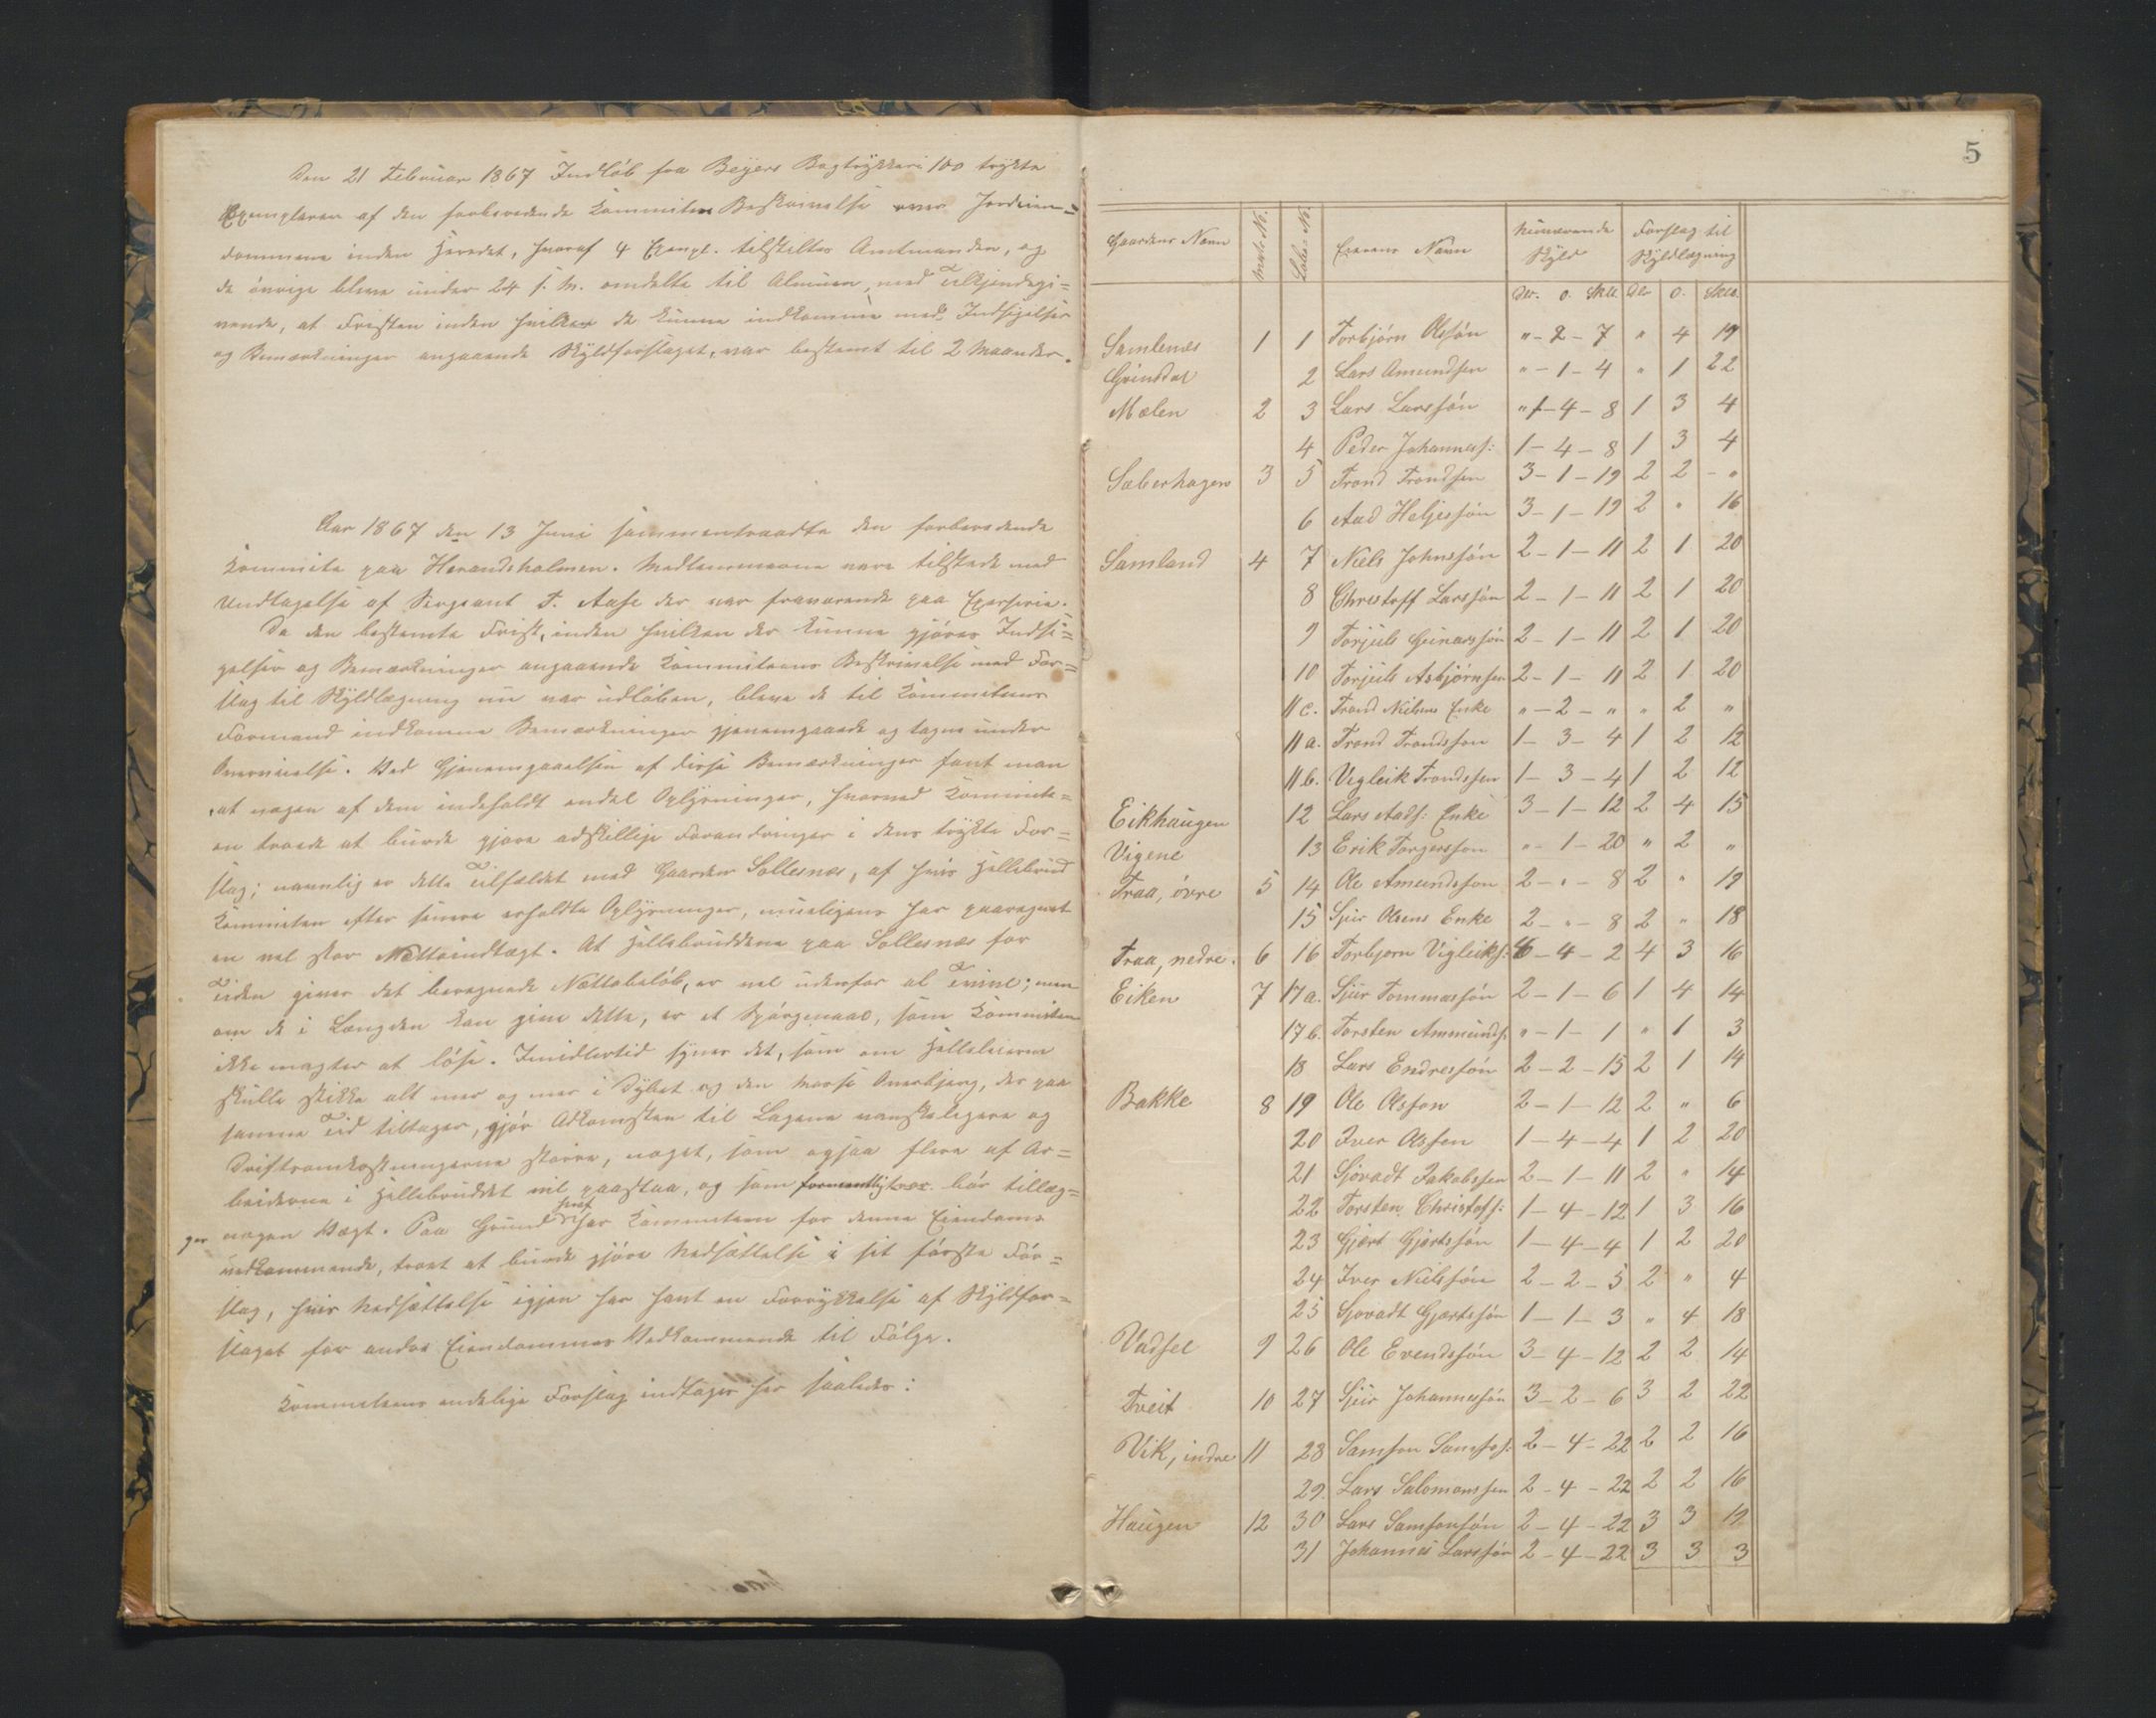 Den 21 Februar 1867 Indløb fra Beyers Bogtrykkeri 100 trykte
Exemplarer af den forberedende Kommites Beskrivelse over Jordeien=
dommene inden Heredet, hvoraf 4 Exempl. tilstilles Amtmanden, og
de øvrige bleve under 24 s. M. omdelte til Almuen, med Tilkjendegi=
vende, at Fristen inden hvilken de kunne indkomme med Indsigelser
og Bemærkninger angaaende Skyldforslaget, var bestemt til 2 Maaneder.
Aar 1867 den 13 Juni sammentraadte den forberedende
Kommite paa Herandsholmen. Medlemmerne vare tilstede med
Undtagelse af Sergeant T. Aase der var fraværende paa Exerserie.
Da den bestemte Frist, inden hvilken der kunne gjøres Indsi=
gelser og Bemærkninger angaaende Kommiteens Beskrivelse med For=
slag til Skyldlægning nu var udløben, bleve de til Kommiteens
Formand indkomne Bemærkninger gjenemgaaede og tagne under
Overveielse. Ved Gjenemgaaelsen af disse Bemærkninger fant man
at nogen af dem indeholdt endel Oplysninger, hvorved Kommite=
en troede at burde gjøre adskillige Forandringer i dens trykte For=
slag; navnlig er dette Tilfældet med Gaarden Sollesnæs, af hvis Hellebrud
Kommiteen efter senere erholdte Oplysninger, mueligens har paaregnet
en vel stor Nettoindtægt. At Hellebruddene paa Sollesnæs for
Tiden giver det beregnede Nettobeløb, er vel udenfor al Tvivl; men
om de i Længden kan give dette, er et Spørgsmaal, som Kommiteen
ikke magter at løse. Imidlertid synes det, som om Helleleierne
skulle stikke alt mer og mer i Dybet og den Masse Overbjerg, der paa
samme Tid tiltager, gjør Adkomsten til Lagene vanskeligere og
Driftsomkostningerne større, noget, som ogsaa flere af Ar=
beiderne i Hellebruddet vil paastaa, og som bør tillæg=
ges nogen Vægt. Paa Grund heraf har Kommiteen for denne Eiendoms
vedkommende, troet at burde gjøre Nedsættelse i sit første For=
slag, hvis Nedsættelse igjen har havt en Forrykkelse af Skyldfor=
slaget for andre Eiendommes Vedkommende til Følge.
Kommiteens endelige Forslag indtages her saaledes:
5
Gaardens Navn Matr. No. Løbe No. Eierens Navn Nuværende Skyld Forslag til Skyldlægning
Dlr. O. Skll. Dlr O. Skll.
Samlenæs 1 1 Torbjørn Olssøn " - 2 - 7 " 4 19
Grindat 2 Lars Amundsen " - 1 - 4 " 1 22
Mælen 2 3 Lars Larssøn 1 - 4 - 8 1 3 4
4 Peder Johanness: 1 - 4 - 8 1 3 4
Saberhagen 3 5 Trond Trondsen 3 - 1 - 19 2 2 - "
6 Aad Heljessøn 3 - 1 - 19 2 " 16
Samland 4 7 Niels Johnssøn 2 - 1 - 11 2 1 20
8 Christoff Larssøn 2 - 1 - 11 2 1 20
9 Torjuls Gunarssøn 2 - 1 - 11 2 1 20
10 Torjuls Asbjørnsen 2 - 1 - 11 2 1 20
11c. Trond Nielsens Enke " - 2 - " " 2 "
11a. Trond Trondsson 1 - 3 - 4 1 2 12
11b. Vigleik Trondssen 1 - 3 - 4 1 2 12
Eikhaugen 12 Lars Aads: Enke 3 - 1 - 12 2 4 15
Vigene 13 Erik Torgersson " - 1 - 20 " 2 "
Traa, øvre 5 14 Ole Amundsson 2 - " - 8 2 " 19
15 Sjur Olsens Enke 2 - " - 8 2 " 18
Traa, nedre. 6 16 Torbjørn Vigleiks: 6 - 4 - 2 4 3 16
Eiken 7 17a. Sjur Tommassøn 2 - 1 - 6 1 4 14
17b. Torsten Ammunds: " - 1 - 1 " 1 3
18 Lars Endressøn 2 - 2 - 15 2 1 14
Bakke 8 19 Ole Olsson 2 - 1 - 12 2 " 6
20 Iver Olssen 1 - 4 - 4 1 2 20
21 Sjovadt Jakobssen 2 - 1 - 11 2 " 14
22 Torsten Christofs: 1 - 4 - 12 1 3 16
23 Gjert Gjertssøn 1 - 4 - 4 1 2 20
24 Iver Nielssøn 2 - 2 - 5 2 " 4
25 Sjovadt Gjertssøn 1 - 1 - 3 " 4 18
Vadsel 9 26 Ole Evendssøn 3 - 4 - 12 2 2 14
Tveit 10 27 Sjur Johannessøn 3 - 2 - 6 3 2 22
Vik, indre 11 28 Samson Samsos: 2 - 4 - 22 2 2 16
29. Lars Salomonssen 2 - 4 - 22 2 2 16
Haugen 12 30 Lars Samsonsøn 2 - 4 - 22 3 3 19
31 Johannes Larssøn 2 - 4 - 22 3 3 3